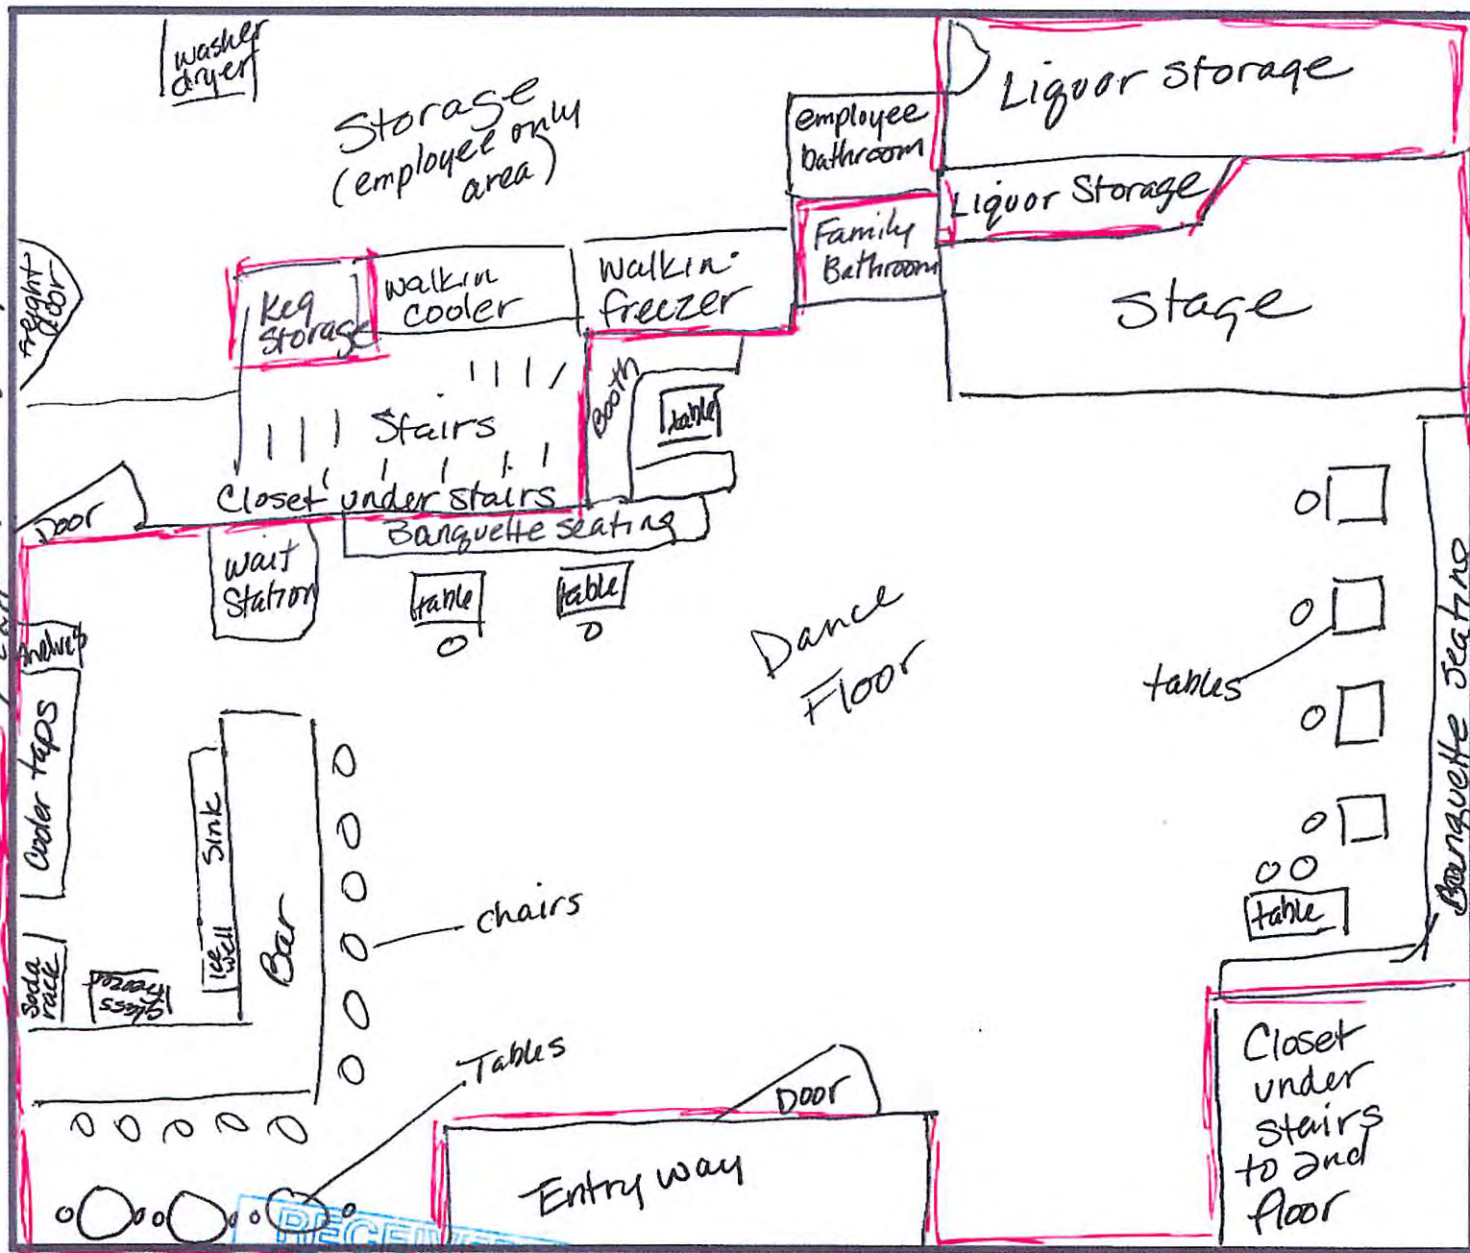 washer
dryer
Storage
(employee only
area)
employee
bathroom
Liquor Storage
Liquor Storage
Family
Bathroom
Stage
Freight
door
Keg
Storage
walkin
cooler
Walkin
freezer
Booth
table
Stairs
Closet under stairs
Door
Banquette seating
wait
Station
table
table
Dance
Floor
tables
Banquette seating
Cooler taps
Sink
Ice
well
Bar
chairs
Soda
rack
table
Tables
Door
Entry way
Closet
under
stairs
to 2nd
floor
RECEIVE